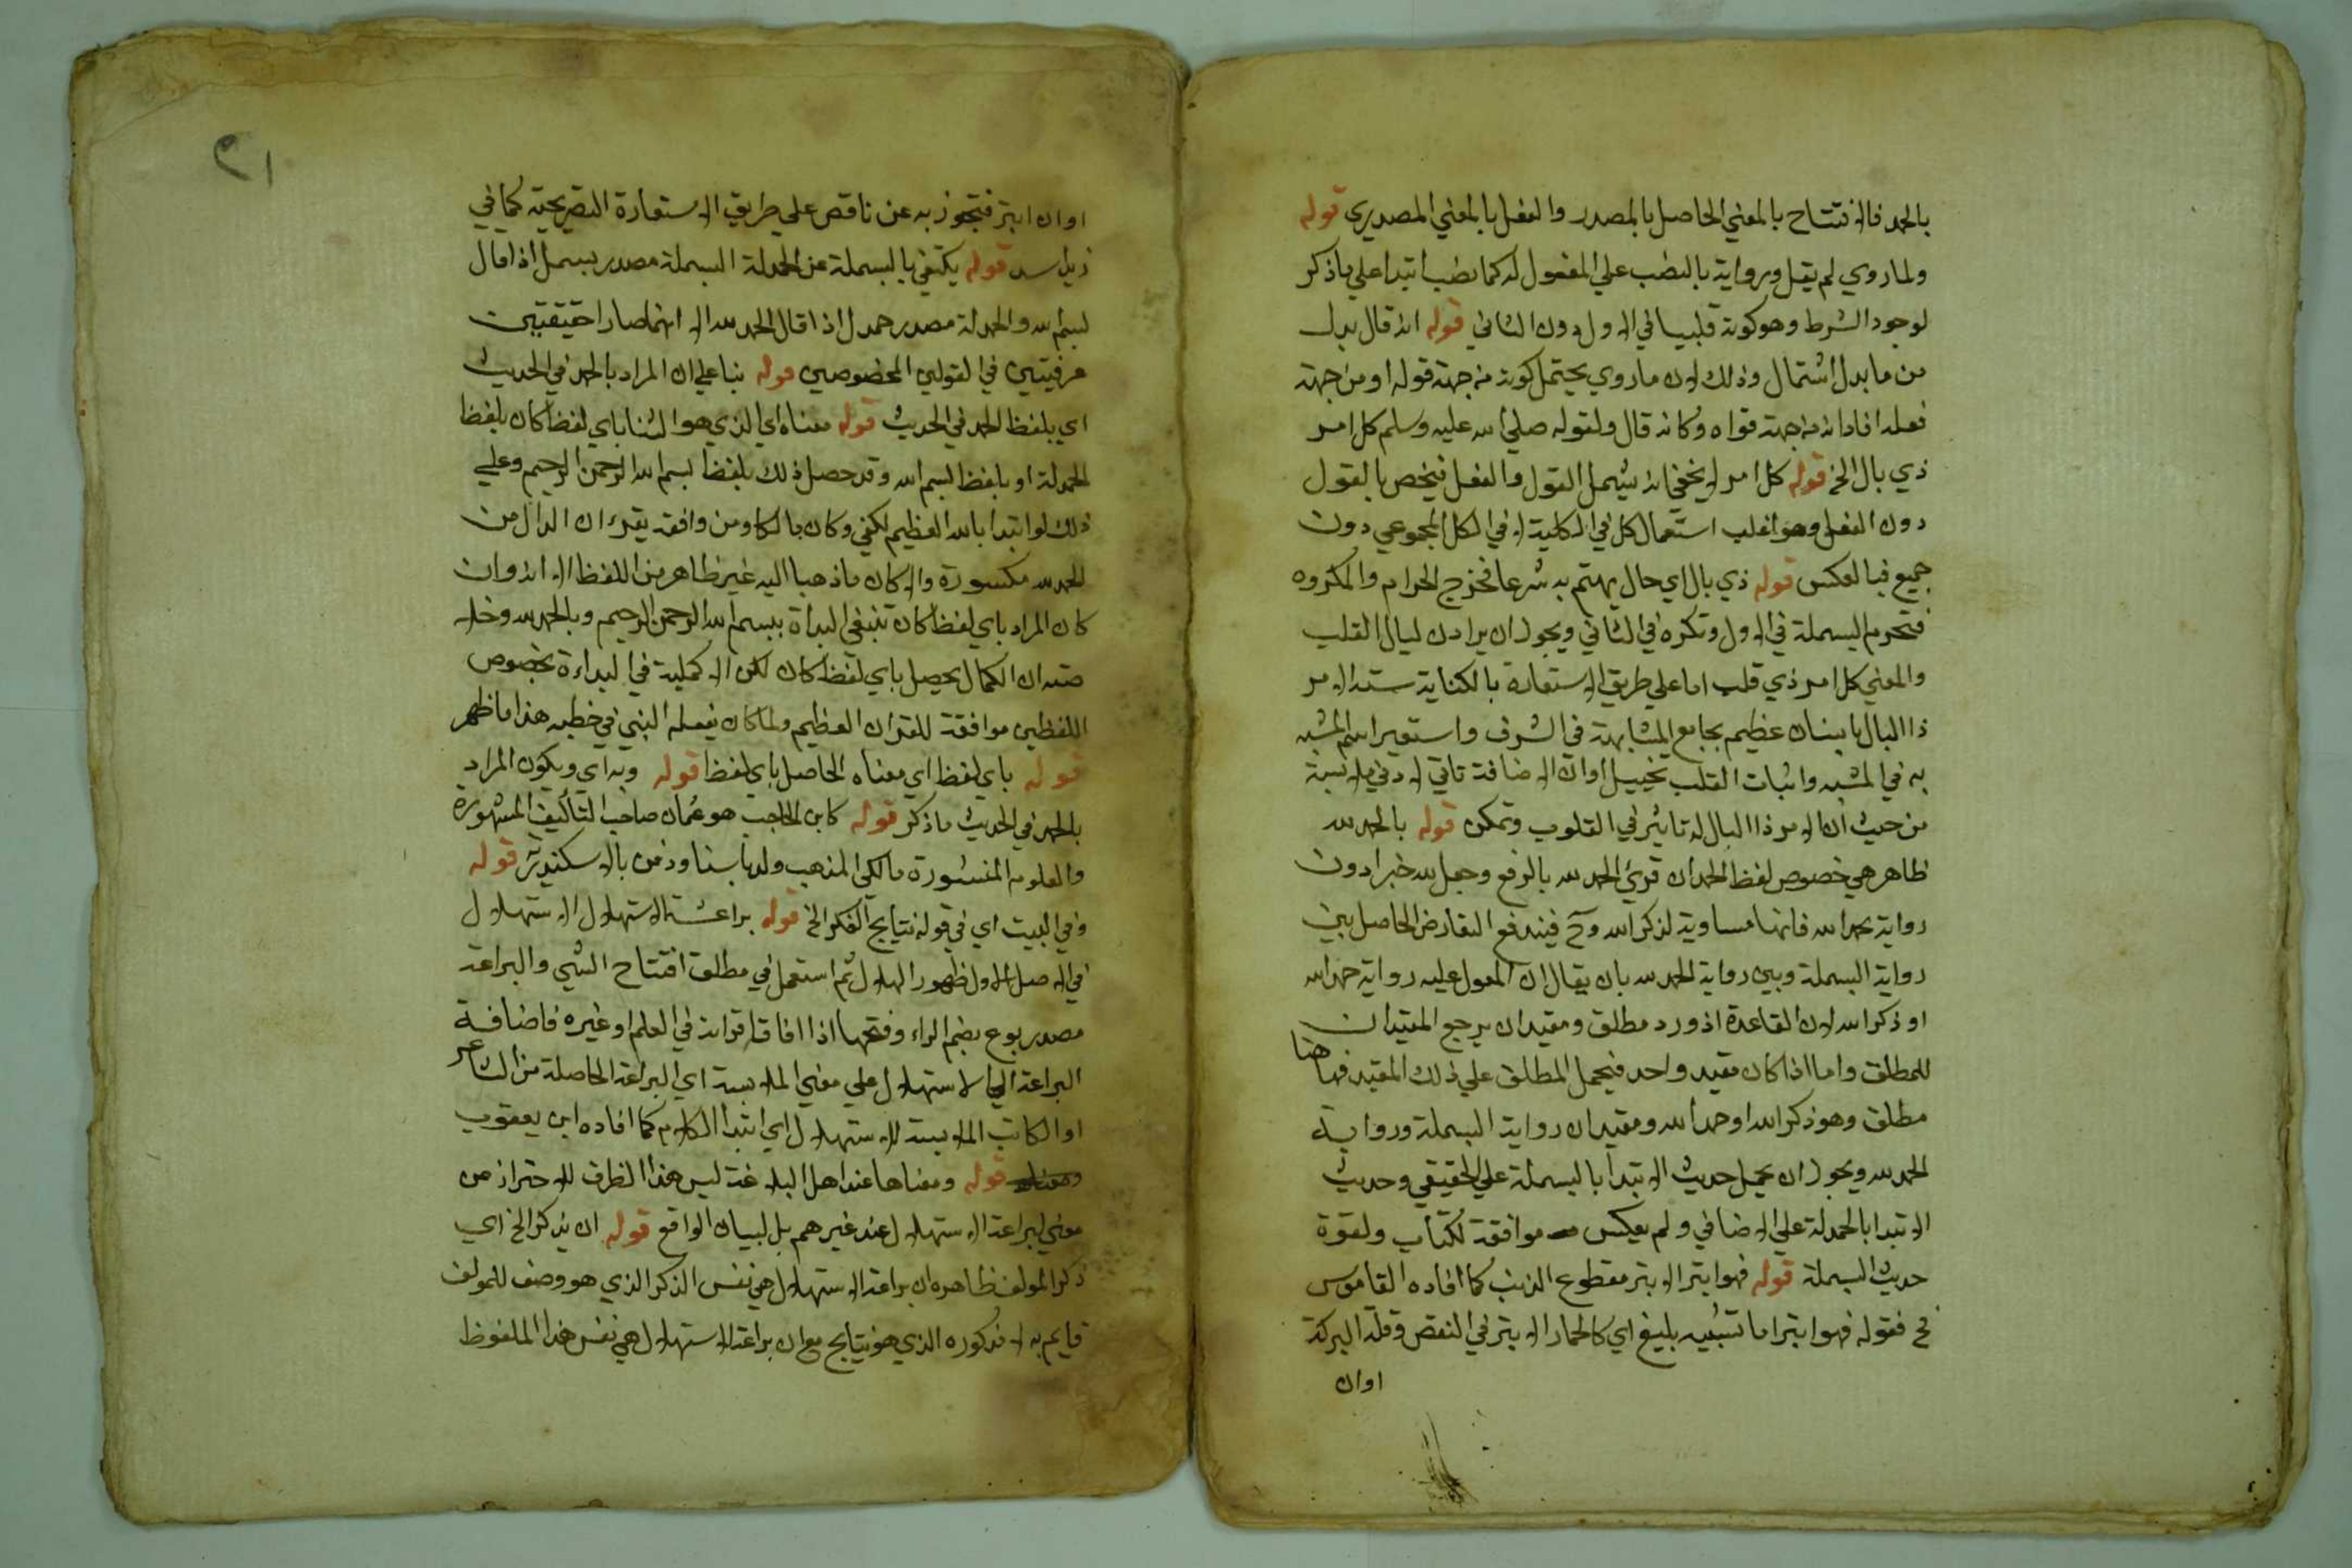 بالحمد فالافتتاح بالمعني الحاصل بالمصدر والفعل بالمعني المصدري قوله
ولما روي لم يقل ورواية بالنصب علي المفعول له كما نصب ابتدا علي ما ذكر
لوجود الشرط وهو كونه قلبيا في الاول دون الثاني قوله انه قال بدل
من ما بدل اشتمال وذلك لان ما روي يحتمل كونه من جهة قوله او من جهة
فعله افاد انه من جهة قوله وكانه قال ولقوله صلي الله عليه وسلم كل امر
ذي بال الخ قوله كل امر لا يخفي انه يشمل القول والفعل فيخص بالقول
دون الفعل وهو اغلب استعمال كل في الكلية لا في الكل المجموعي دون
جميع فبالعكس قوله ذي بال اي حال يهتم به شرعا فخرج الحرام والمكروه
فتحرم البسملة في الاول وتكره في الثاني ويجوز ان يراد بالبال القلب
والمعني كل امر ذي قلب اما علي طريق الاستعارة بالكناية شبه الامر
ذا البال بانسان عظيم بجامع المشابهة في الشرف واستعير اسم المشبه
به في المشبه واثبات القلب تخييل او ان الاضافة تاتي لادني ملابسة
من حيث ان الامر ذا البال له تاثير في القلوب وتمكن قوله بالحمد لله
ظاهر في خصوص لفظ الحمد ان قرئ الحمد لله بالرفع وجعل لله خبرا دون
رواية بحمد الله فانها مساوية لذكر الله وح فيندفع التعارض الحاصل بين
رواية البسملة وبين رواية الحمد لله بان يقال ان المعول عليه رواية حمد الله
او ذكر الله لان القاعدة اذ ورد مطلق ومقيدان يرجع المقيدان
للمطلق واما اذا كان مقيد واحد فيحمل المطلق علي ذلك المقيد فهاهنا
مطلق وهو ذكر الله او حمد الله ومقيدان رواية البسملة ورواية
الحمد لله ويجوز ان يحمل حديث الابتدا بالبسملة علي الحقيقي وحديث
الابتدا بالحمدلة علي الاضافي ولم يعكس موافقة لكتاب ولقوة
حديث البسملة قوله فهو ابتر الابتر مقطوع الذنب كما افاده القاموس
فح فقوله فهو ابتر اما تشبيه بليغ اي كالحمار الابتر في النقص وقلة البركة
اوان
٢١
او ان ابتر فتجوز به عن ناقص علي طريق الاستعارة التصريحية كما في
زيد اسد قوله يكتفي بالبسملة عن الحمدلة البسملة مصدر بسمل اذا قال
بسم الله والحمدلة مصدر حمدل اذا قال الحمد لله الا انهما صارا حقيقتين
عرفيتين في القولين المخصوصين قوله بنا علي ان المراد بالحمد في الحديث
اي بلفظ الحمد في الحديث قوله معناه اي الذي هو الثنا باي لفظ كان بلفظ
الحمدلة او بلفظ بسم الله وقد حصل ذلك بلفظ بسم الله الرحمن الرحيم وعلي
ذلك لو ابتدا بالله العظيم لكفي وكان مالكا ومن وافقه يقرا ان الدال من
الحمد لله مكسورة والا كان ما ذهبا اليه غير ظاهر من اللفظ الا انه وان
كان المراد باي لفظ كان تنبغي البداة ببسم الله الرحمن الرحيم وبالحمد لله وخلاصته
ان الكمال يحصل باي لفظ كان لكن الاكملية في البداءة بخصوص
اللفظين موافقة للقران العظيم ولما كان يفعله النبي في خطبه هذا ما ظهر
قوله باي لفظ اي معناه الحاصل باي لفظ قوله وبه اي ويكون المراد
بالحمد في الحديث ما ذكر قوله كابن الحاجب هو عثمان صاحب التأليف المشهورة
والعلوم المنشورة مالكي المذهب ولد باسنا ودفن بالاسكندرية قوله
وفي البيت اي في قوله نتايج الفكر الخ قوله براعة الاستهلال الاستهلال
في الاصل الاول ظهور الهلال ثم استعمل في مطلق افتتاح الشي والبراعة
مصدر بوع بضم الراء وفتحها اذا افاق اقرانه في العلم او غيره فاضافة
البراعة الي الاستهلال علي معني الملابسة اي البراعة الحاصلة من الشاعر
او الكاتب الملابسة للاستهلال اي ابتدا الكلام كما افاده ابن يعقوب
قوله ومعناها عند اهل البلاغة ليس هذا الظرف للاحتراز عن
معني لبراعة الاستهلال عند غيرهم بل لبيان الواقع قوله ان يذكر الخ اي
ذكر المولف ظاهره ان براعة الاستهلال هي نفس الذكر الذي هو وصف للمولف
قايم به لا مذكوره الذي هو نتايج مع ان براعة الاستهلال هي نفس هذا الملفوظ